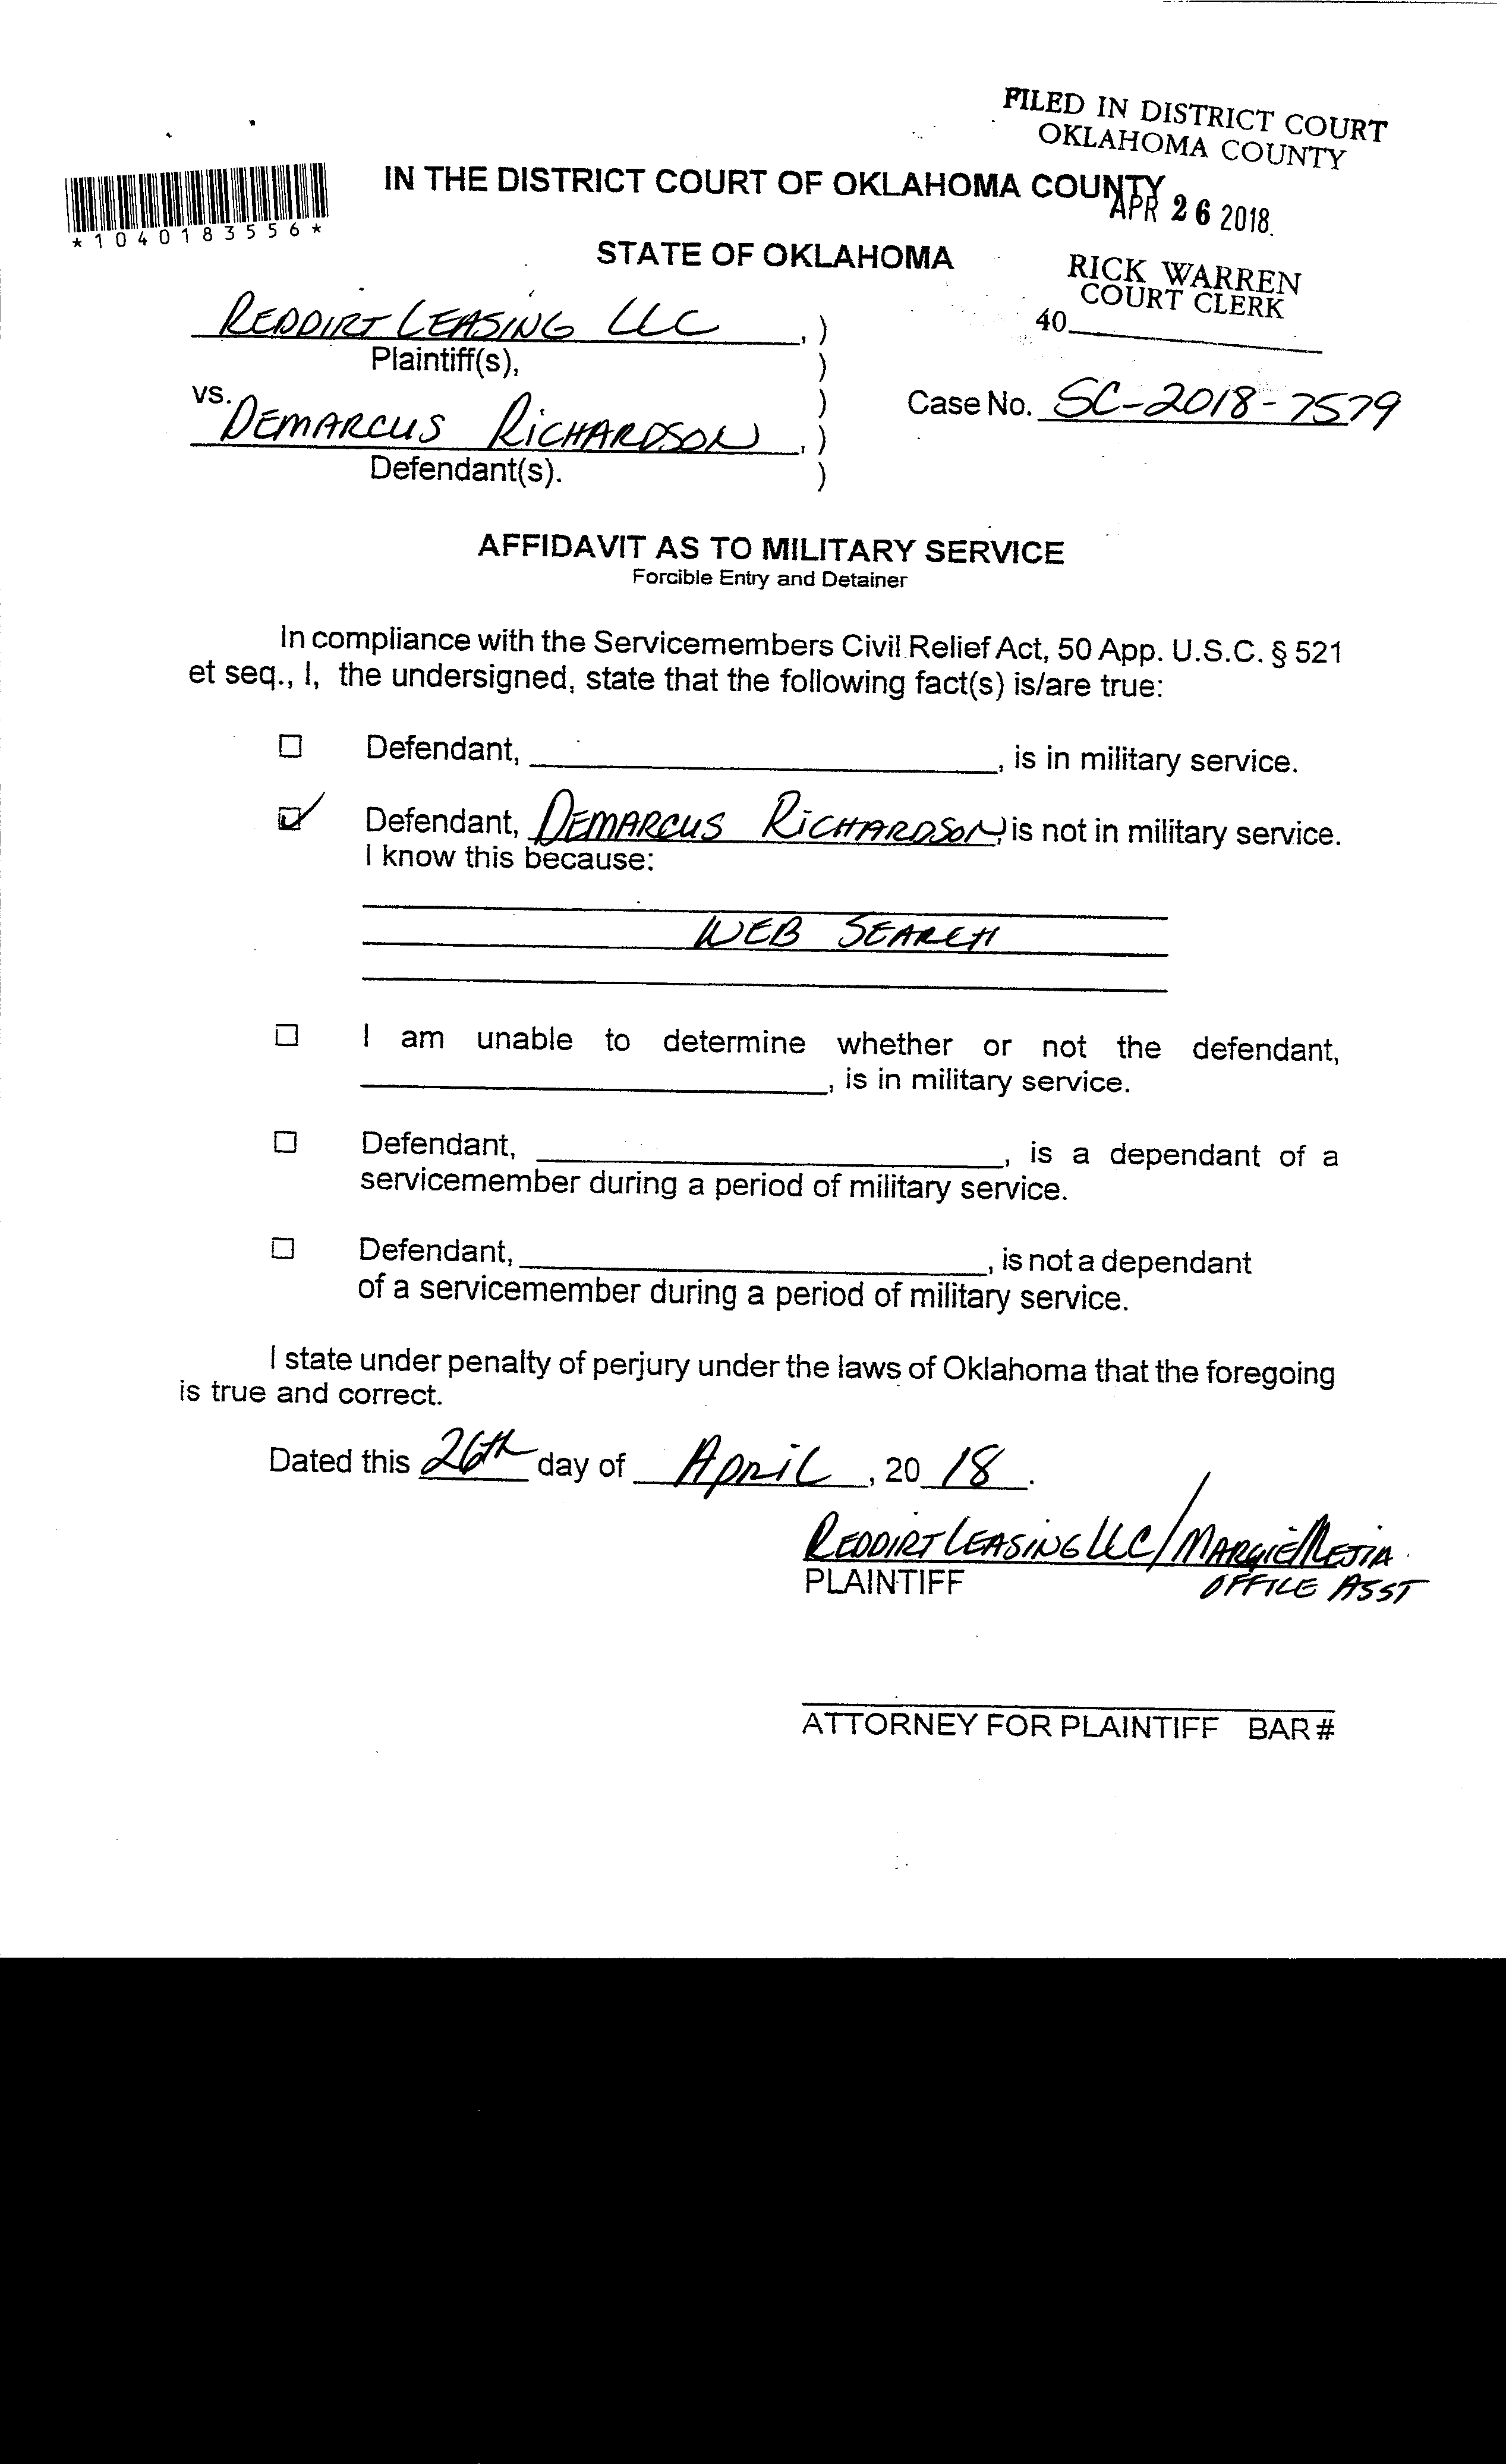 FILED IN DISTRICT COURT
OKLAHOMA COUNTY
IN THE DISTRICT COURT OF OKLAHOMA COUNTY
APR 26 2018
*1040183556*
STATE OF OKLAHOMA
RICK WARREN
COURT CLERK
40
REDDIRT LEASING LLC, )
Plaintiff(s), )
vs. )
Case No. SC-2018-7579
DEMARCUS RICHARDSON, )
Defendant(s). )
AFFIDAVIT AS TO MILITARY SERVICE
Forcible Entry and Detainer
In compliance with the Servicemembers Civil Relief Act, 50 App. U.S.C. § 521
et seq., I, the undersigned, state that the following fact(s) is/are true:
☐ Defendant, ____________, is in military service.
☑ Defendant, DEMARCUS RICHARDSON, is not in military service.
I know this because:
WEB SEARCH
☐ I am unable to determine whether or not the defendant,
____________, is in military service.
☐ Defendant, ____________, is a dependant of a
servicemember during a period of military service.
☐ Defendant, ____________, is not a dependant
of a servicemember during a period of military service.
I state under penalty of perjury under the laws of Oklahoma that the foregoing
is true and correct.
Dated this 26th day of April, 20 18.
REDDIRT LEASING LLC/MARGIE MEJIA
PLAINTIFF OFFICE ASST
ATTORNEY FOR PLAINTIFF BAR #